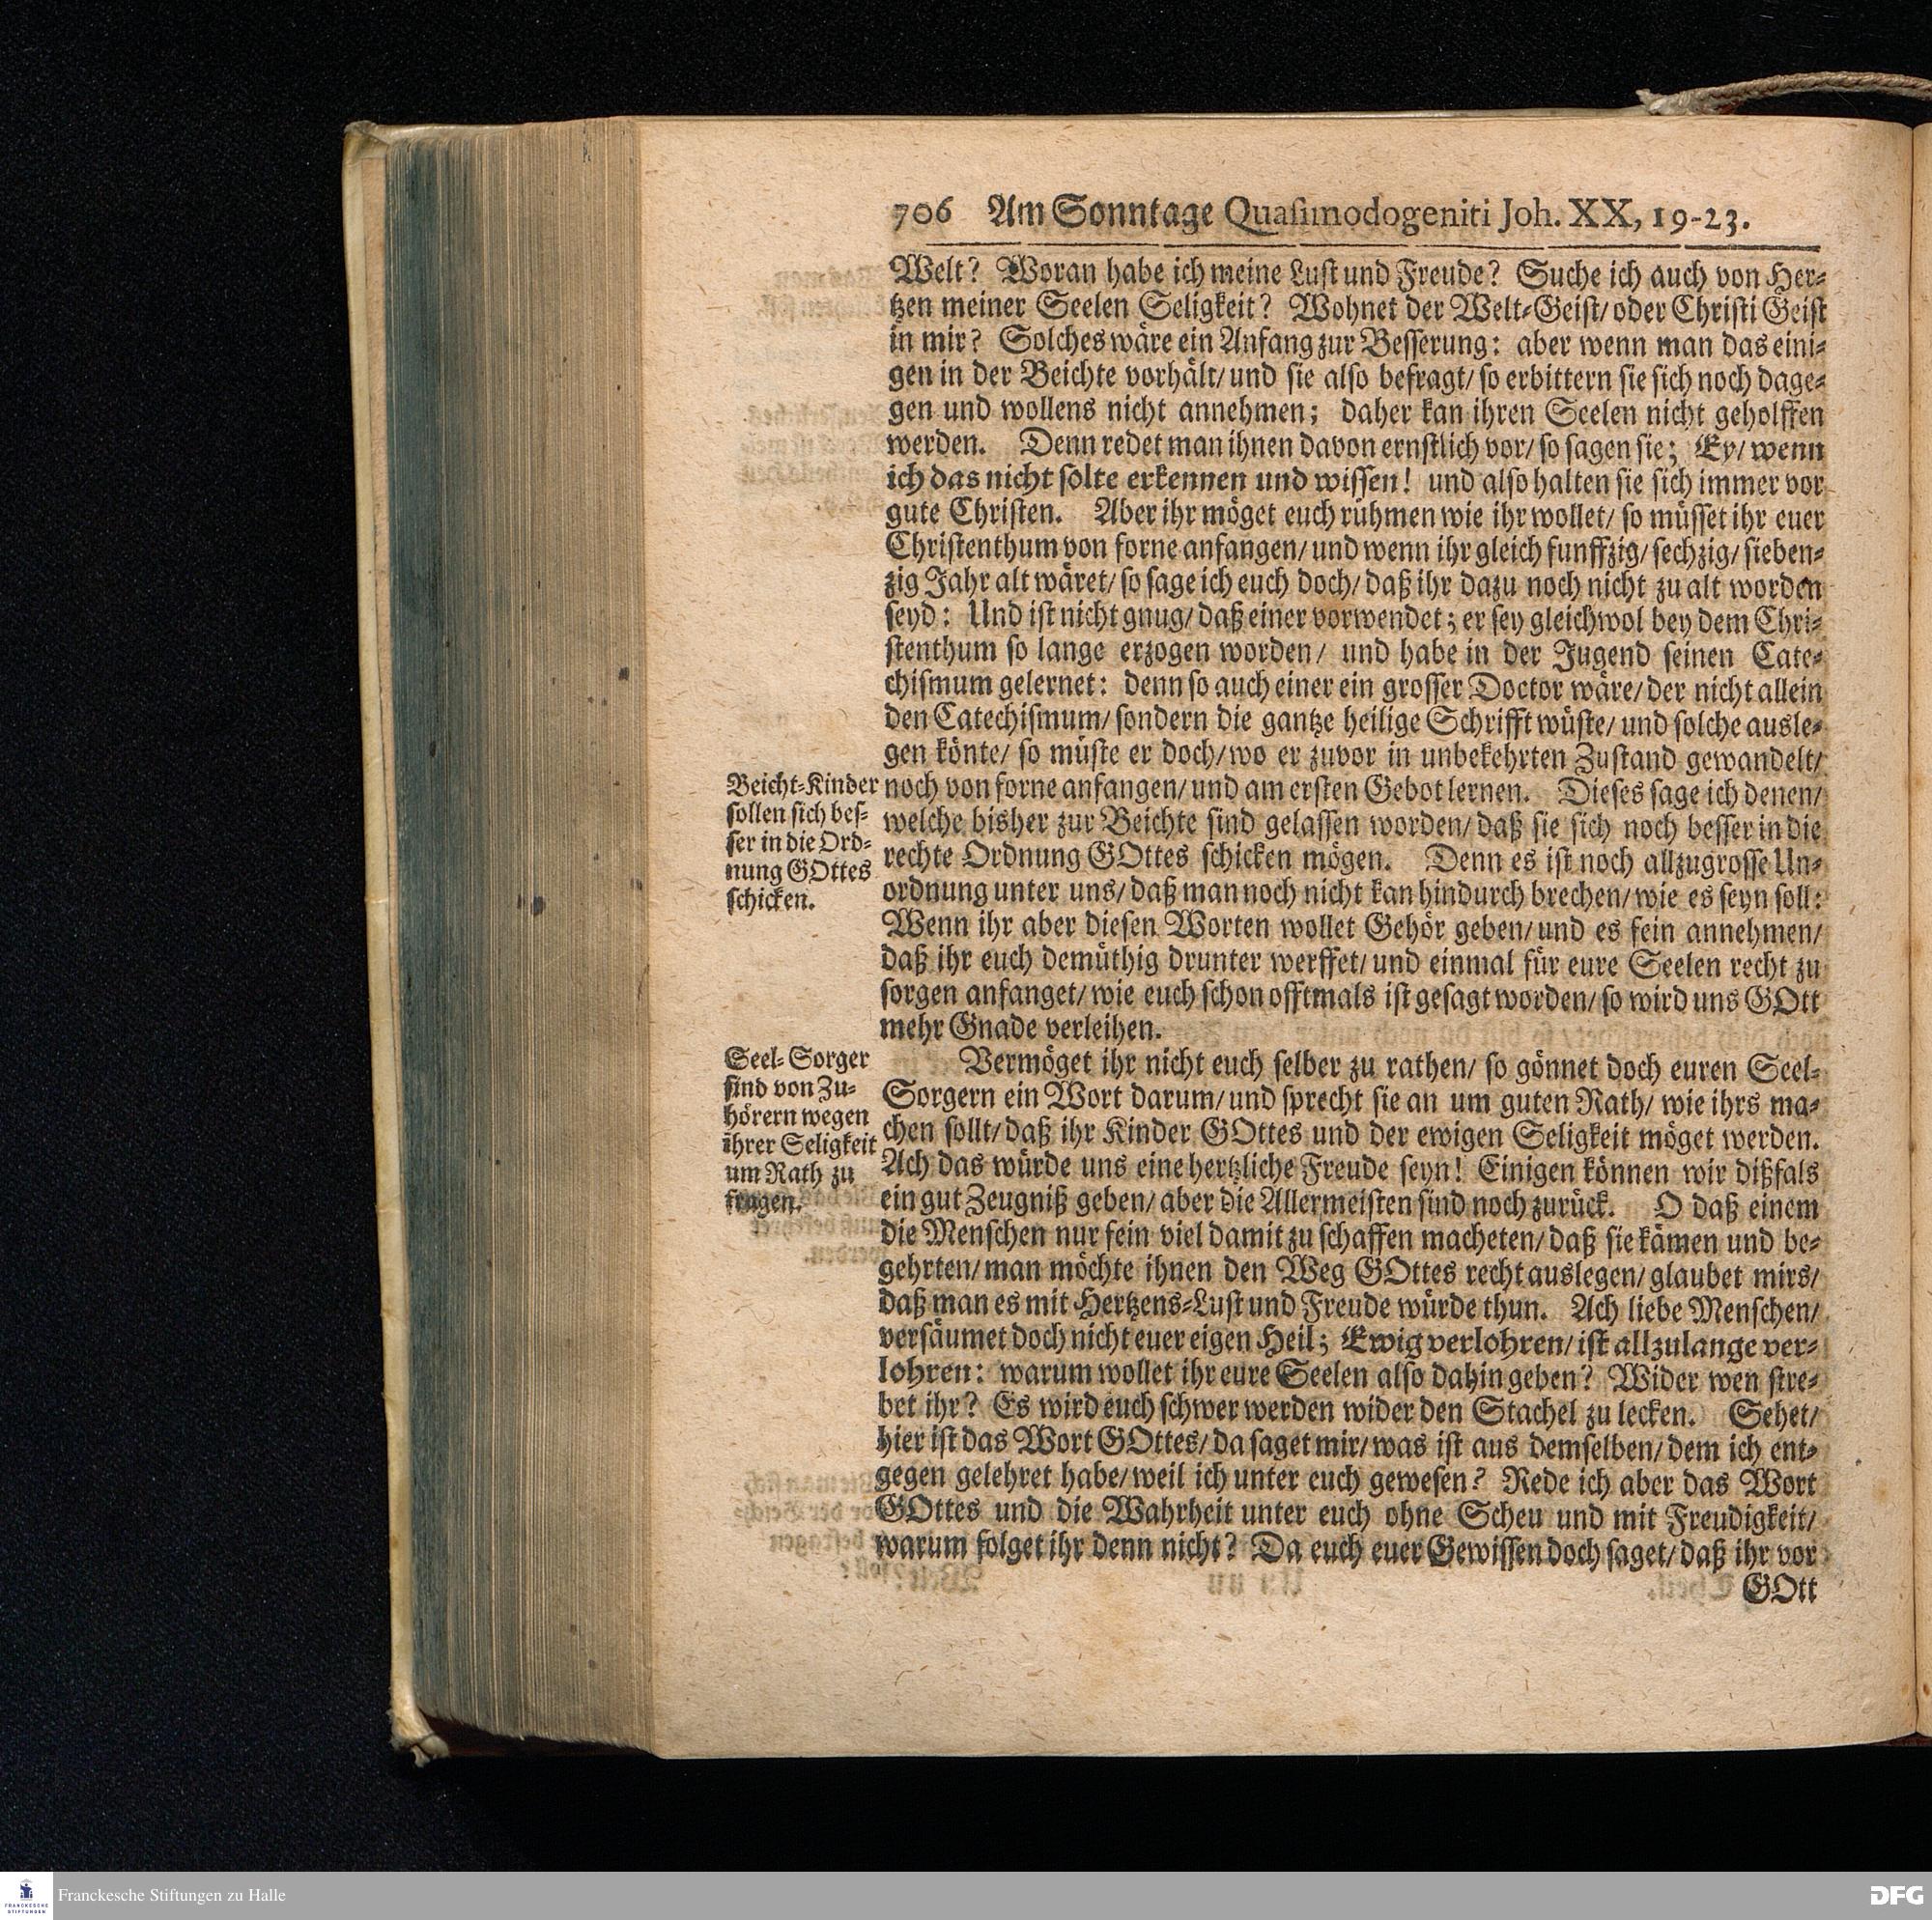 706 Am Sonntage Quasimodogeniti Joh. XX, 19-23.
Welt? Woran habe ich meine Lust und Freude? Suche ich auch von Her-
tzen meiner Seelen Seligkeit? Wohnet der Welt-Geist/ oder Christi Geist
in mir? Solches wäre ein Anfang zur Besserung: aber wenn man das eini-
gen in der Beichte vorhält/ und sie also befragt/ so erbittern sie sich noch dage-
gen und wollens nicht annehmen; daher kan ihren Seelen nicht geholffen
werden. Denn redet man ihnen davon ernstlich vor/ so sagen sie; Ey/ wenn
ich das nicht solte erkennen und wissen! und also halten sie sich immer vor
gute Christen. Aber ihr möget euch ruhmen wie ihr wollet/ so müsset ihr euer
Christenthum von forne anfangen/ und wenn ihr gleich funffzig/ sechzig/ sieben-
zig Jahr alt wäret/ so sage ich euch doch/ daß ihr dazu noch nicht zu alt worden
seyd: Und ist nicht gnug/ daß einer vorwendet; er sey gleichwol bey dem Chri-
stenthum so lange erzogen worden/ und habe in der Jugend seinen Cate-
chismum gelernet: denn so auch einer ein grosser Doctor wäre/ der nicht allein
den Catechismum/ sondern die gantze heilige Schrifft wüste/ und solche ausle-
gen könte/ so müste er doch/ wo er zuvor in unbekehrten Zustand gewandelt/
noch von forne anfangen/ und am ersten Gebot lernen. Dieses sage ich denen/
welche bisher zur Beichte sind gelassen worden/ daß sie sich noch besser in die
rechte Ordnung GOttes schicken mögen. Denn es ist noch allzugrosse Un-
ordnung unter uns/ daß man noch nicht kan hindurch brechen/ wie es seyn soll:
Wenn ihr aber diesen Worten wollet Gehör geben/ und es fein annehmen/
daß ihr euch demüthig drunter werffet/ und einmal für eure Seelen recht zu
sorgen anfanget/ wie euch schon offtmals ist gesagt worden/ so wird uns GOtt
mehr Gnade verleihen.
Beicht-Kinder
sollen sich bes-
ser in die Ord-
nung GOttes
schicken.
Vermöget ihr nicht euch selber zu rathen/ so gönnet doch euren Seel-
Sorgern ein Wort darum/ und sprecht sie an um guten Rath/ wie ihrs ma-
chen sollt/ daß ihr Kinder GOttes und der ewigen Seligkeit möget werden.
Ach das würde uns eine hertzliche Freude seyn! Einigen können wir dißfals
ein gut Zeugniß geben/ aber die Allermeisten sind noch zurück. O daß einem
die Menschen nur fein viel damit zu schaffen macheten/ daß sie kämen und be-
gehrten/ man möchte ihnen den Weg GOttes recht auslegen/ glaubet mirs/
daß man es mit Hertzens-Lust und Freude würde thun. Ach liebe Menschen/
versäumet doch nicht euer eigen Heil; Ewig verlohren/ ist allzulange ver-
lohren: warum wollet ihr eure Seelen also dahin geben? Wider wen stre-
bet ihr? Es wird euch schwer werden wider den Stachel zu lecken. Sehet/
hier ist das Wort GOttes/ da saget mir/ was ist aus demselben/ dem ich ent-
gegen gelehret habe/ weil ich unter euch gewesen? Rede ich aber das Wort
GOttes und die Wahrheit unter euch ohne Scheu und mit Freudigkeit/
warum folget ihr denn nicht? Da euch euer Gewissen doch saget/ daß ihr vor
GOtt
Seel-Sorger
sind von Zu-
hörern wegen
ihrer Seligkeit
um Rath zu
fragen.
FRANCKESCHE
STIFTUNGEN
Franckesche Stiftungen zu Halle
DFG